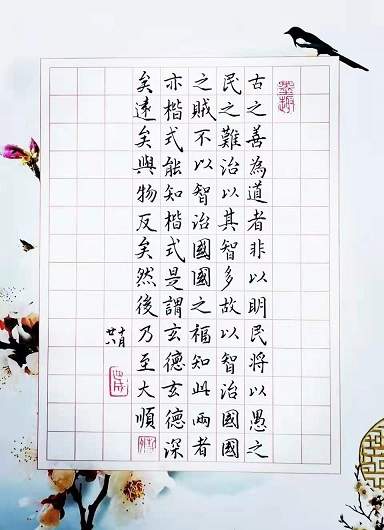 古之善為道者非以明民將以愚之
民之難治以其智多故以智治國國
之賊不以智治國國之福知此兩者
亦楷式能知楷式是謂玄德玄德深
矣遠矣與物反矣然後乃至大順
十月
廿八